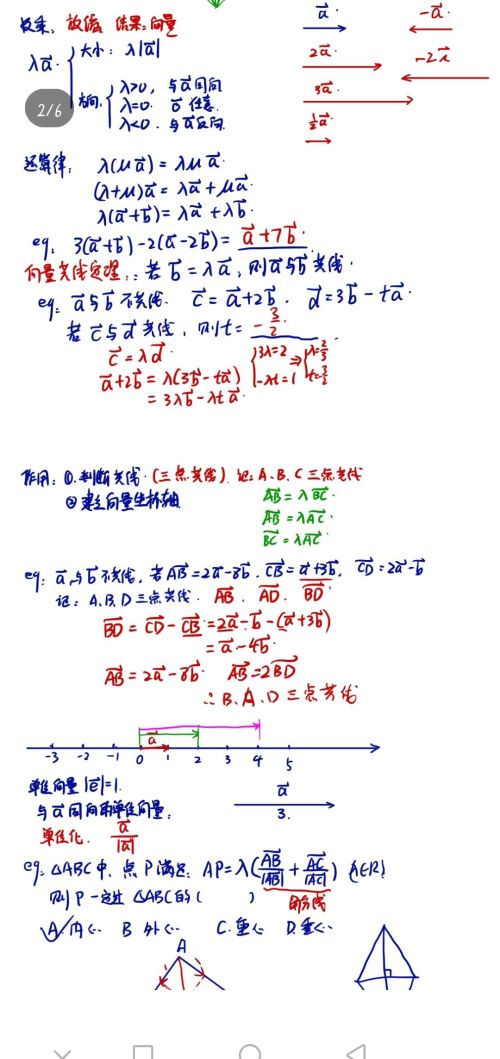 数乘: 放缩 结果: 向量
λa⃗ 大小: λ|a⃗|
方向 λ>0, 与a⃗同向
λ=0. 0⃗ 任意.
λ<0. 与a⃗反向.
a⃗ -a⃗
2a⃗ -2a⃗
3a⃗
½a⃗
2/6
运算律: λ(μa⃗) = λμa⃗.
(λ+μ)a⃗ = λa⃗+μa⃗.
λ(a⃗+b⃗) = λa⃗+λb⃗.
eg: 3(a⃗+b⃗)-2(a⃗-2b⃗) = a⃗+7b⃗.
向量共线定理: 若 b⃗=λa⃗, 则a⃗与b⃗共线.
eg: a⃗与b⃗不共线. c⃗=a⃗+2b⃗. d⃗=3b⃗-ta⃗.
若c⃗与d⃗共线, 则t= -3/2.
c⃗=λd⃗
a⃗+2b⃗ = λ(3b⃗-ta⃗)
= 3λb⃗-λta⃗
{3λ=2 -λt=1 ⇒ {λ=2/3 t=-3/2
作用: ①. 判断共线. (三点共线). 证: A、B、C三点共线
② 建立向量坐标轴
AB⃗=λBC⃗.
AB⃗=λAC⃗.
BC⃗=λAC⃗
eg: a⃗与b⃗不共线, 若AB⃗=2a⃗-8b⃗, CB⃗=a⃗+3b⃗, CD⃗=2a⃗-b⃗
证: A、B、D三点共线. AB⃗ AD⃗ BD⃗
BD⃗=CD⃗-CB⃗=2a⃗-b⃗-(a⃗+3b⃗)
=a⃗-4b⃗.
AB⃗=2a⃗-8b⃗ AB⃗=2BD⃗
∴B、A、D三点共线
a⃗
-3 -2 -1 0 1 2 3 4 5
单位向量 |e⃗|=1.
与a⃗同向的单位向量:
a⃗
3.
单位化. a⃗/|a⃗|
eg: △ABC中, 点P满足: AP=λ(AB⃗/|AB⃗| + AC⃗/|AC⃗|) (λ∈R)
则P一定过△ABC的( )
A 内心 B 外心 C.重心 D.垂心
A